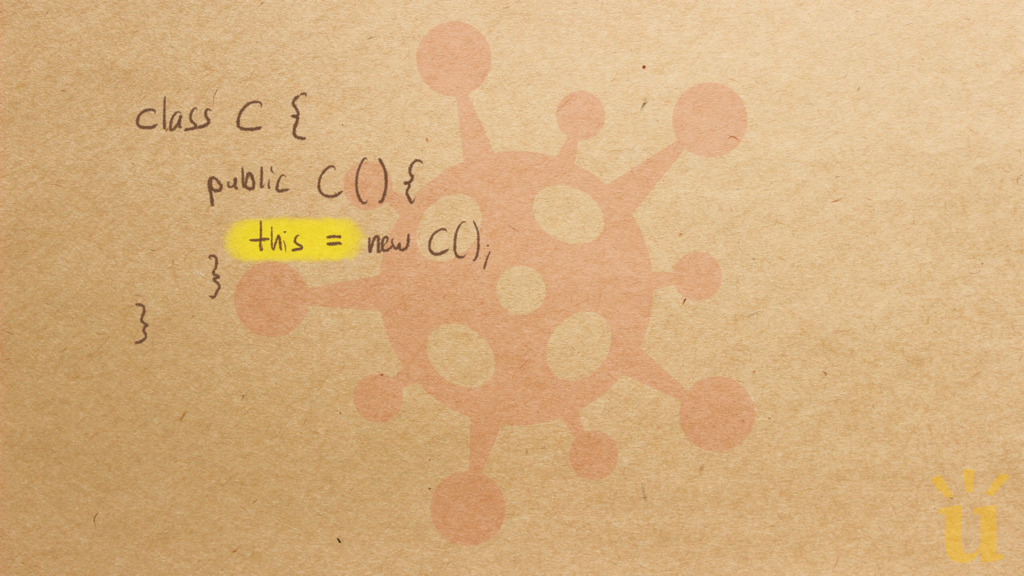 class C {
public C() {
this = new C();
}
}
u